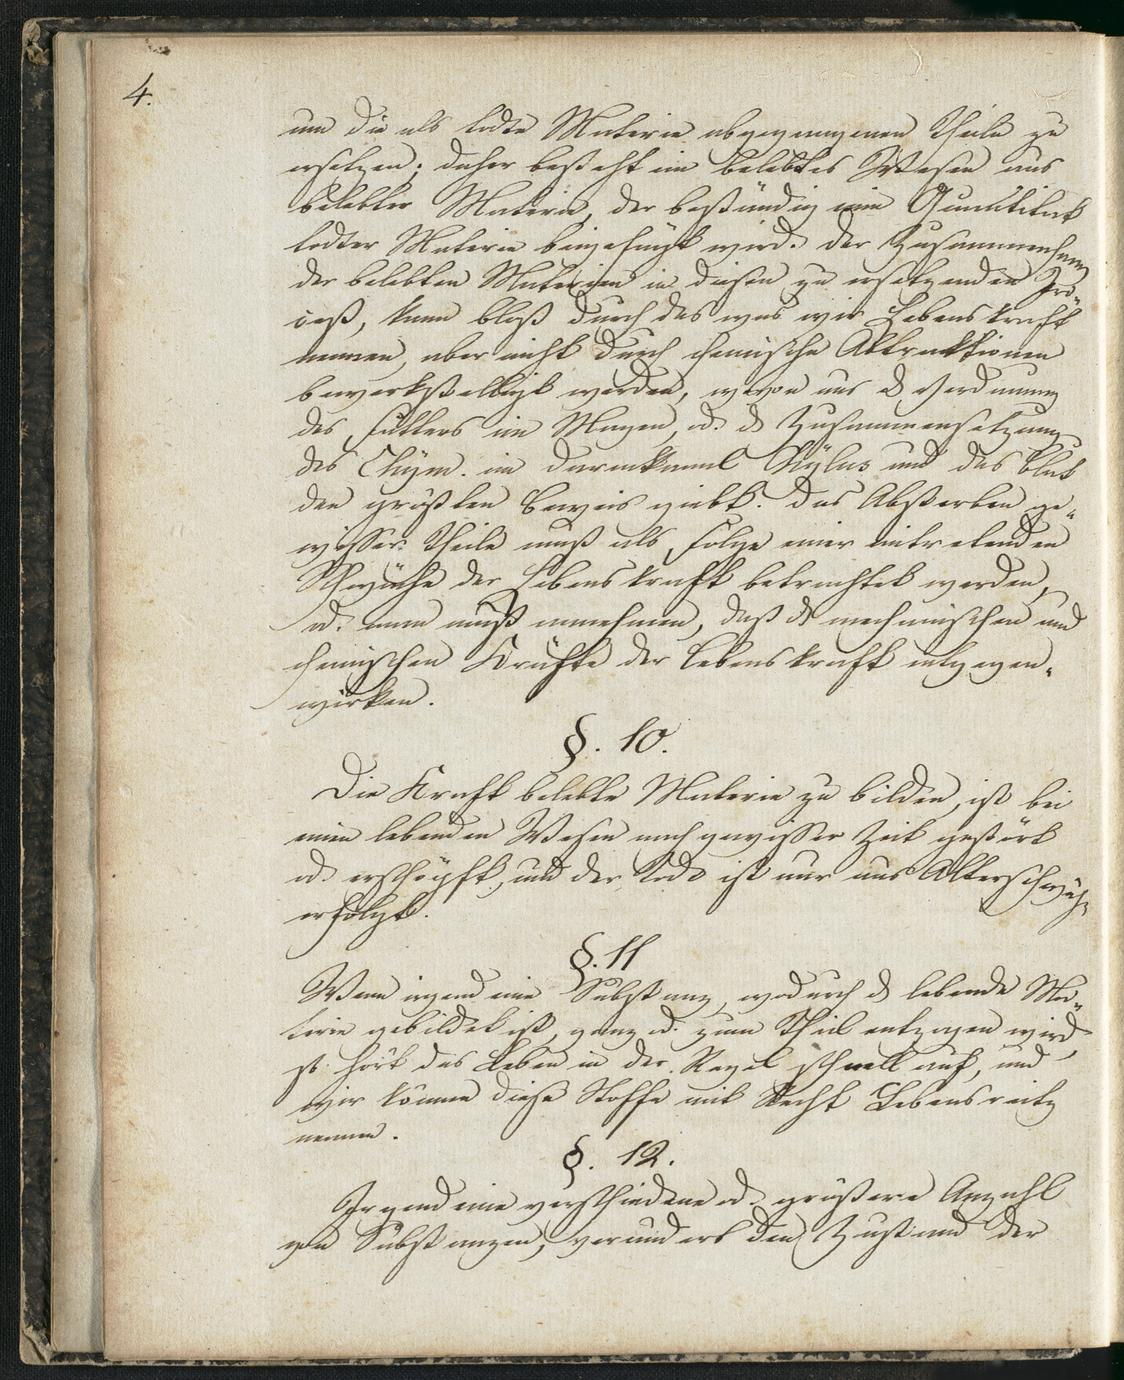 4.
um die als todte Materie abgegangenen Theile zu
ersetzen; daher besteht ein belebtes Wesen aus
belebter Materie, der beständig eine Quantitaet
todter Materie beigefügt wird. Der Zusammenhang
der belebten Materien in diesen zu ersetzenden Pro-
ceß, kann bloß durch das was wir Lebenskraft
nennen, aber nicht durch chemische Attraktionen
bewerkstelligt werden, wovon uns d Verdauung
des Futters im Magen, od. d Zusammensetzung
des Chym. im Darmkanal Chÿlus und das Blut
den größten Beweis giebt. Das Absterben ge-
wisser Theile muß als Folge einer eintretenden
Schwäche der Lebenskraft betrachtet werden,
od. man muß annehmen, daß d mechanischen und
chemischen Kräfte der Lebenskraft entgegen-
wirken.
§. 10.
Die Kraft belebte Materie zu bilden, ist bei
einen lebenden Wesen nach gewisser Zeit gestört
od. erschöpft, und der Tod ist nur aus Altersschwäche
erfolgt.
§. 11
Wenn irgend eine Substanz, wodurch d lebende Ma-
terie gebildet ist, ganz od. zum Theil entzogen wird,
so hört das Leben in der Regel schnell auf, und
wir können diese Stoffe mit Recht Lebensreitz
nennen.
§. 12.
Irgend eine verschiedene od. größere Anzahl
von Substanzen, verändert den Zustand der